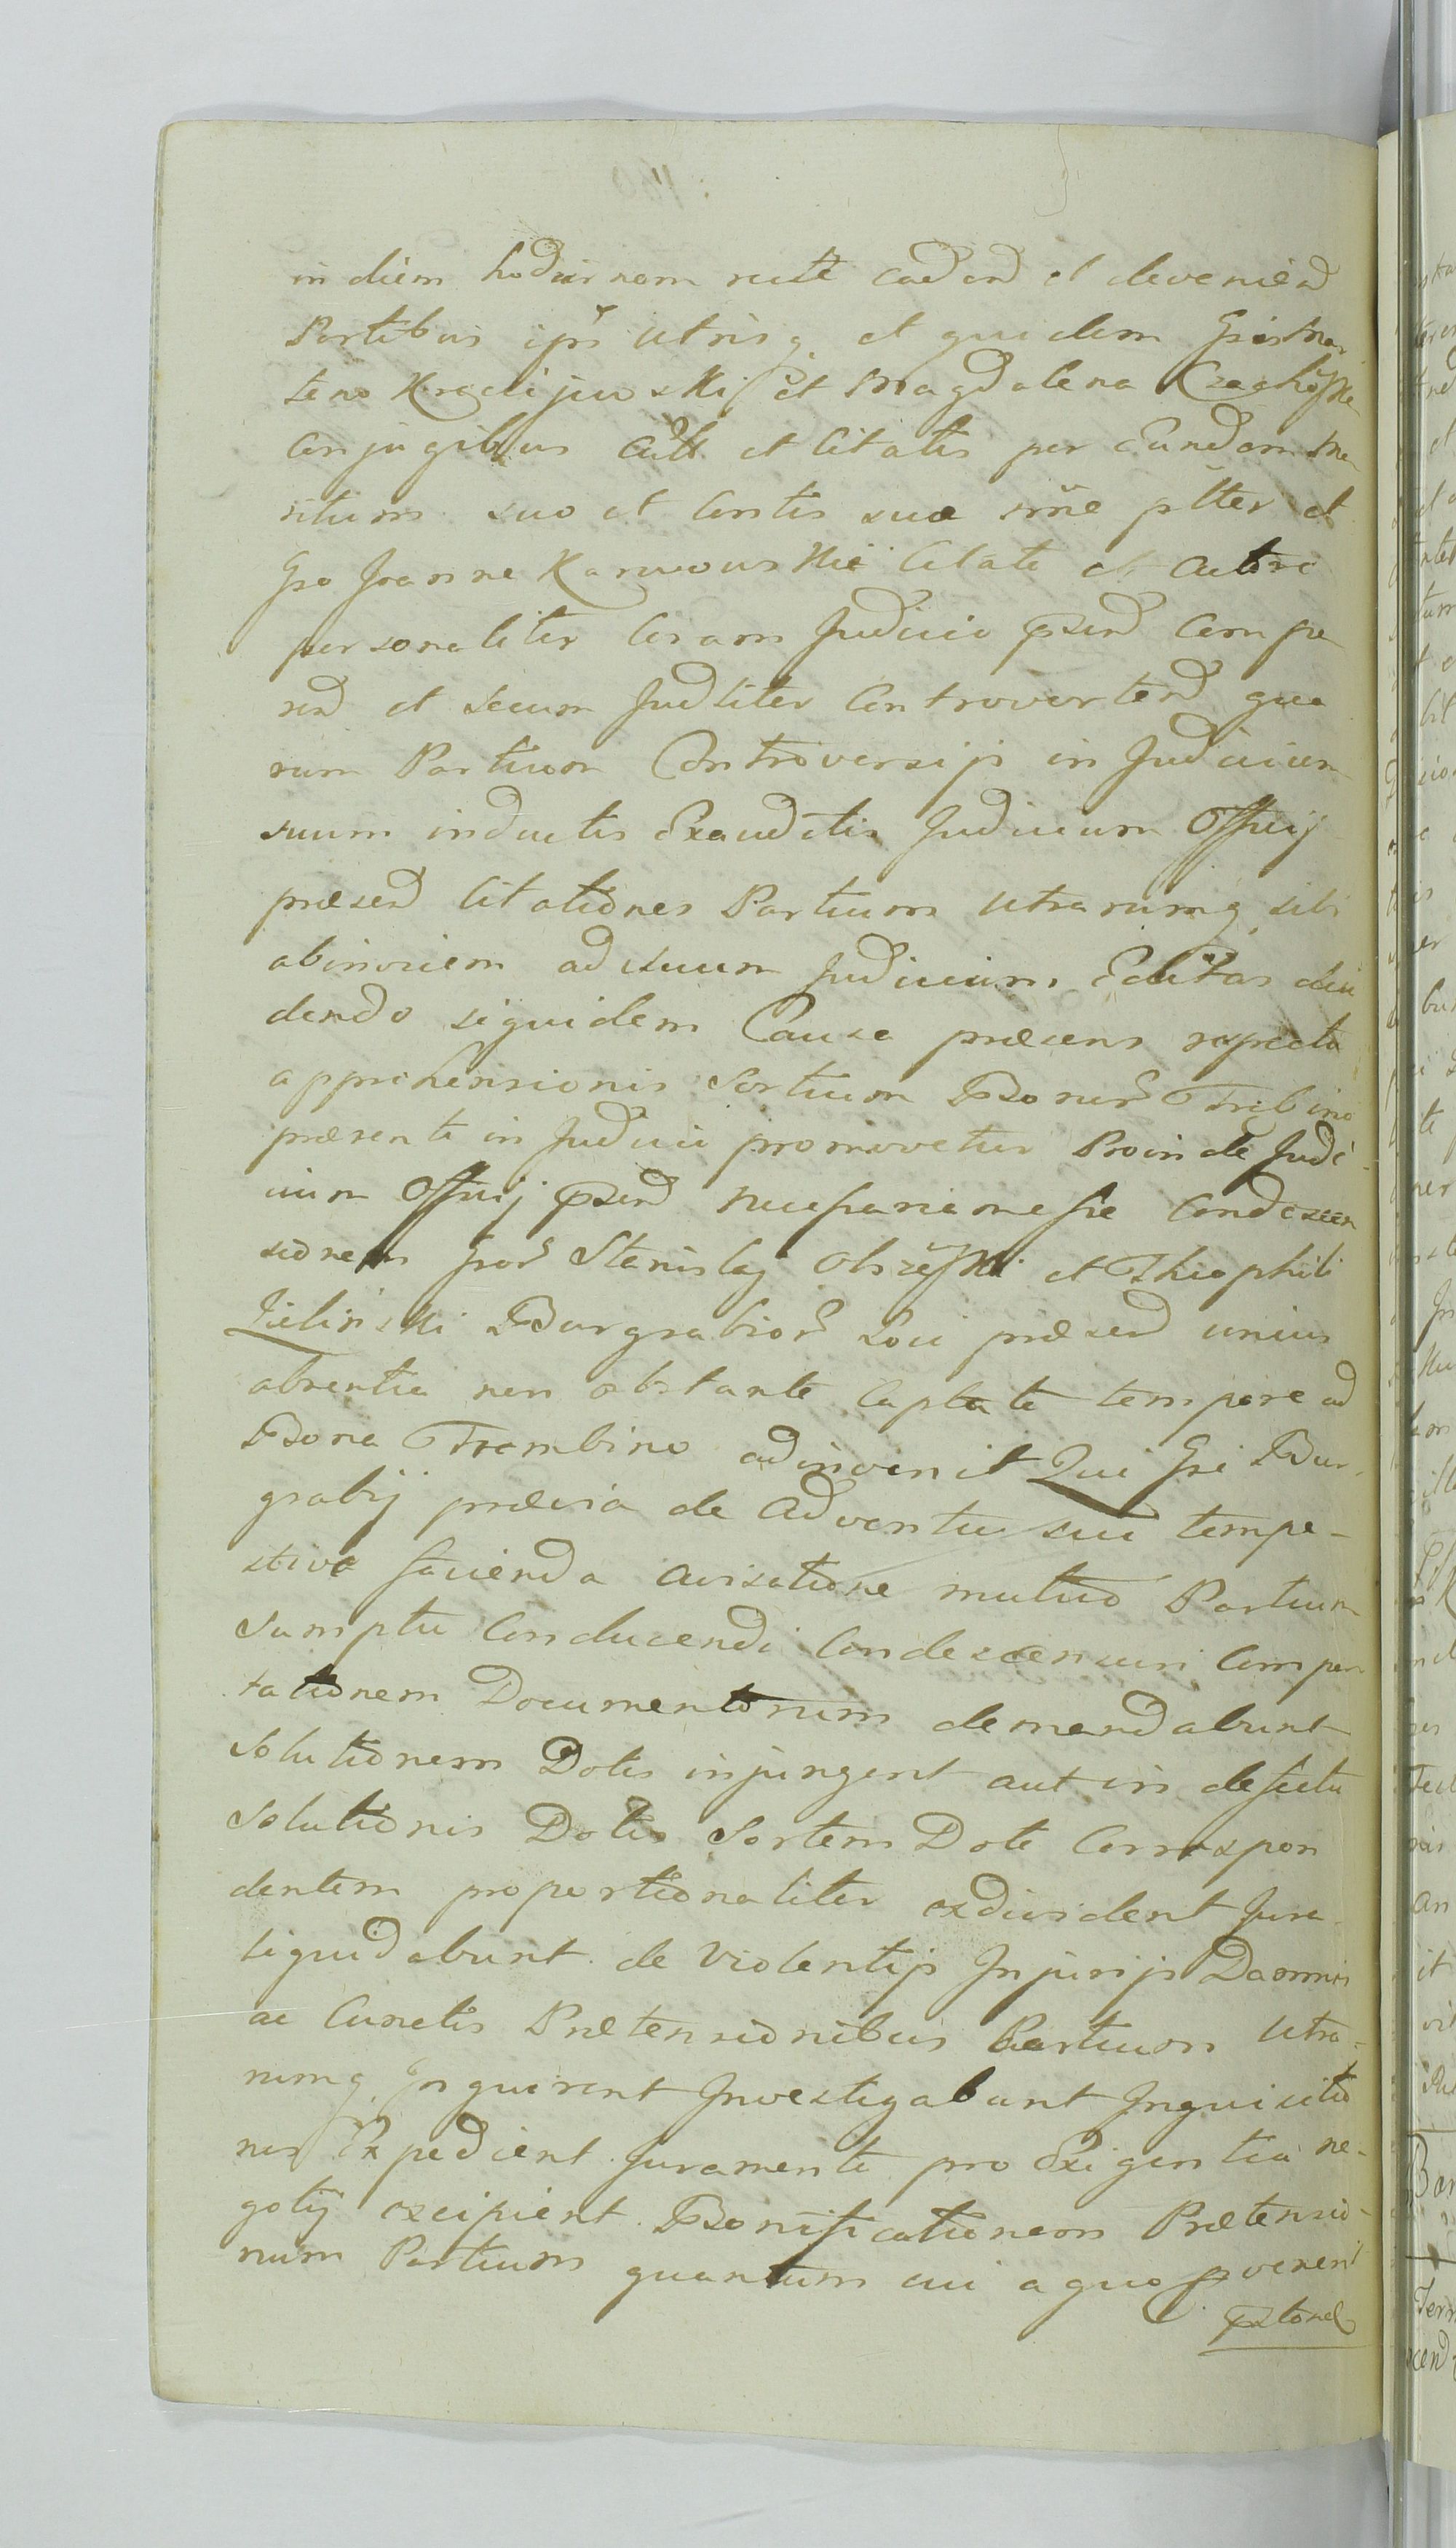 in diem hodiernam recte cadend et deveniend
Partibus ips utrisq et quidem
Kraclijewski et Magdalena
Conjugibus et Citatis per Eundem Ma
ritum suo et Contis suæ nne ptter et
Gso Joanne Karwowski Citato et Actore
personaliter Coram Judicio psend Compa
rend et secum Judliter Controvertend qua
rum Partium Controversijs in Judicium
suum inductis Exauditis Judicium Officij
præsend Citationes Partium Utrarumq sibi
abinvicem ad suum Judicium Editas
dendo siquidem Causa præsens respectu
apprehensionis Sortium Bonor
præsenti in Judicio promovetur Proinde Judi-
cium Officij psend necessariam esse Condescen
sionem Gsor Stanislaj et Theophili
Zielinski Burgrabior Loci præsend unius
absentia non obstante Captato tempore ad
Bona Trambino adinvenit Qui Gsi Bur-
grabij prævia de Adventu sui tempe-
stive facienda avisatione mutuo Partium
Sumptu Conducendi Condescensuri Compor
tationem Documentorum demandabunt
Solutionem Dotis injungent aut in defectu
Solutionis Dotis Sortem Dote Correspon
dentem proportionaliter exdivident Jura
liquidabunt de Violentijs Injurijs Damnis
ac Cunctis Prætensionibus Partium Utra-
rumq Inquirent Investigabunt Inquisitio
nes Expedient Juramenta pro Exigentia ne-
gotij excipient Bonificationem Prætensio-
num Partium quantum cui a quo pvenerit